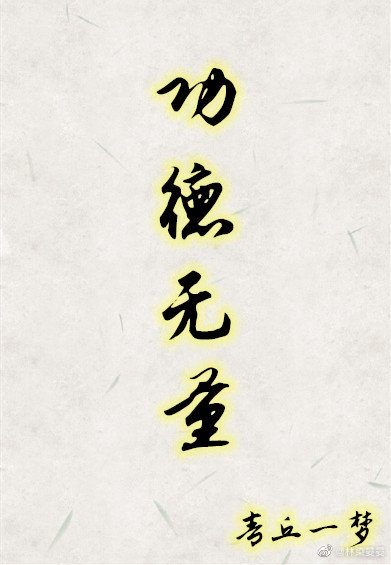 功德无量
青丘一梦